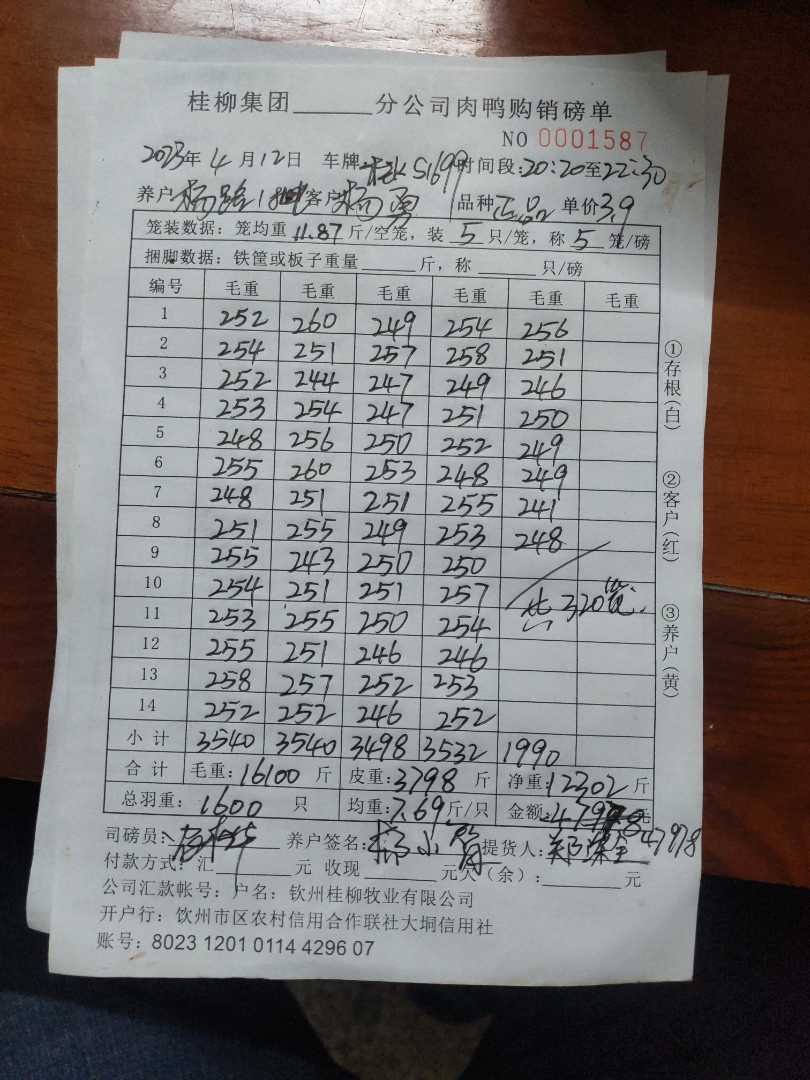 桂柳集团______分公司肉鸭购销磅单
NO 0001587
2023年4月12日 车牌 S1699 时间段:20:20至22:30
养户 杨 客户 杨勇 品种 正品 单价 3.9
笼装数据: 笼均重 11.87 斤/空笼, 装 5 只/笼, 称 5 笼/磅
捆脚数据: 铁筐或板子重量______斤, 称______只/磅
编号 毛重 毛重 毛重 毛重 毛重 毛重
1 252 260 249 254 256
2 254 251 257 258 251
3 252 244 247 249 246
4 253 254 247 251 250
5 248 256 250 252 249
6 255 260 253 248 249
7 248 251 251 255 241
8 251 255 249 253 248
9 255 243 250 250
10 254 251 251 257 共320笼
11 253 255 250 254
12 255 251 246 246
13 258 257 252 253
14 252 252 246 252
小计 3540 3540 3498 3532 1990
合计 毛重:16100斤 皮重:3798斤 净重:12302斤
总羽重: 1600 只 均重:7.69斤/只 金额: 元
47978
司磅员: 养户签名: 杨小 提货人: 郑
付款方式: 汇______元 收现______元欠(余):______元
公司汇款帐号: 户名: 钦州桂柳牧业有限公司
开户行: 钦州市区农村信用合作联社大垌信用社
账号: 8023 1201 0114 4296 07
①存根(白)
②客户(红)
③养户(黄)